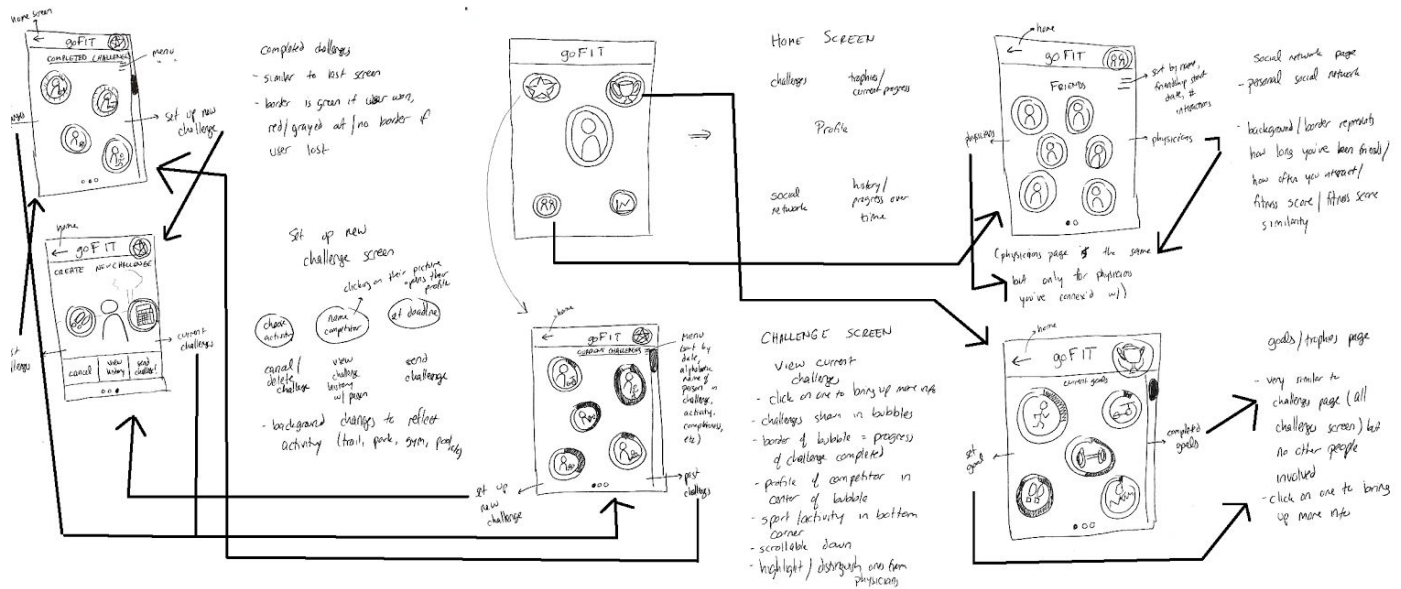 home screen
← goFIT
COMPLETED CHALLENGES
menu
set up new
challenge
completed challenges
- similar to last screen
- border is green if user won,
red/grayed out/no border if
user lost
home
← goFIT
CREATE NEW CHALLENGE
cancel
view
history
send
challenge!
current
challenges
Set up new
challenge screen
clicking on their picture
opens their
profile
choose
activity
name
competitor
set deadline
cancel/
delete
challenge
view
challenge
history
w/ person
send
challenge
- background changes to reflect
activity (trail, park, gym, pool, etc)
goFIT
⇒
HOME SCREEN
challenges
trophies/
current progress
Profile
social
network
history/
progress over
time
home
← goFIT
CURRENT CHALLENGES
Menu
(sort by
date,
alphabetic
name of
person in
challenge,
activity,
completeness,
etc)
set up
new
challenge
past
challenges
CHALLENGE SCREEN
view current
challenges
- click on one to bring up more info
- challenges shown in bubbles
- border of bubble = progress
of challenge completed
- profile of competitor in
center of bubble
- sport/activity in bottom
corner
- scrollable down
- highlight/distinguish ones from
physicians
home
← goFIT
FRIENDS
sort by name,
friendship start
date, #
interactions
physicians
physicians
(physicians page is the same
but only for physicians
you've connex'd w/)
Social network page
- personal social network
- background/border represents
how long you've been friends/
how often you interact/
fitness score/fitness score
similarity
home
← goFIT
current goals
set
goal
completed
goals
goals/trophies page
- very similar to
challenges page (all
challenges screen) but
no other people
involved
- click on one to bring
up more info